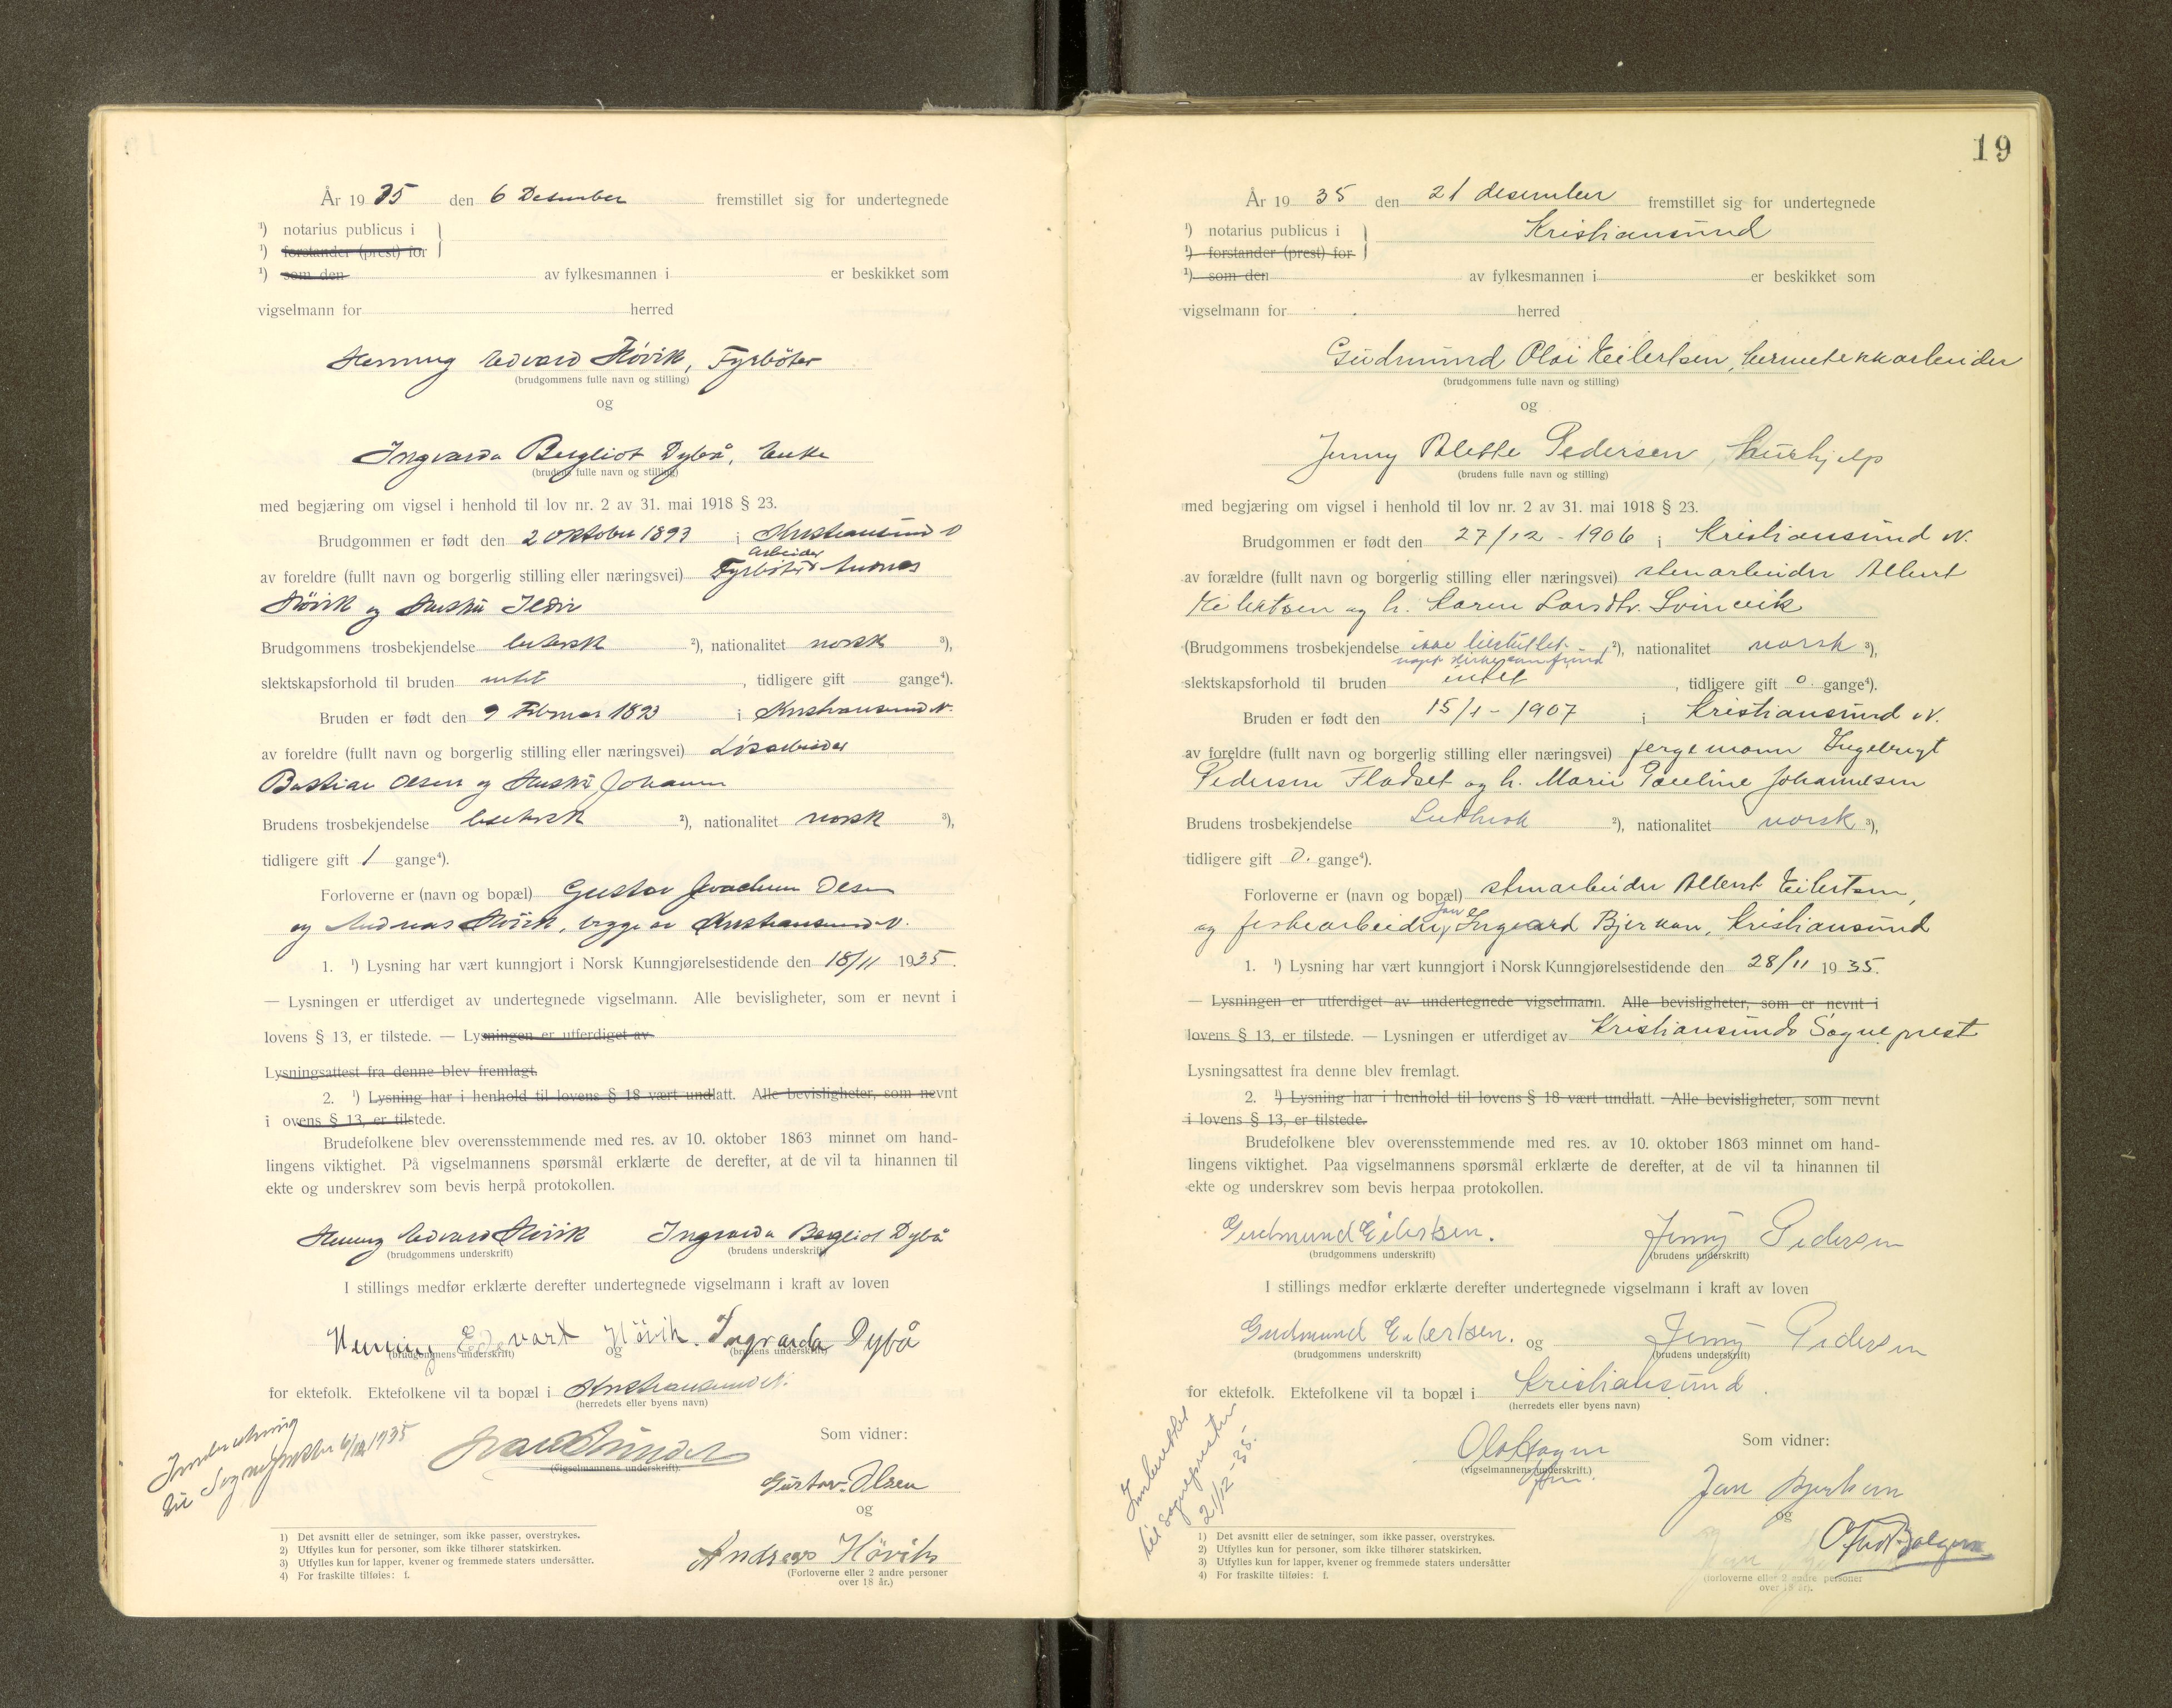 År 19 35 den 6 Desember fremstillet sig for undertegnede
¹) notarius publicus i
¹) forstander (prest) for
¹) som den av fylkesmannen i er beskikket som
vigselmann for herred
Henning Edvard Hövik, Fyrböter
(brudgommens fulle navn og stilling)
og
Ingvarda Bergliot Dybå, Enke
(brudens fulle navn og stilling)
med begjæring om vigsel i henhold til lov nr. 2 av 31. mai 1918 § 23.
Brudgommen er født den 2 oktober 1893 i Kristiansund N
arbeider
av foreldre (fullt navn og borgerlig stilling eller næringsvei) Fyrböter Andreas
Hövik og Hustru
Brudgommens trosbekjendelse luthersk ²), nationalitet norsk ³),
slektskapsforhold til bruden intet , tidligere gift gange⁴).
Bruden er født den 9 Februar 1893 i Kristiansund N.
av foreldre (fullt navn og borgerlig stilling eller næringsvei) Lösarbeider
Bastian Olsen og Hustru Johanne
Brudens trosbekjendelse luthersk ²), nationalitet norsk ³),
tidligere gift 1 gange⁴).
Forloverne er (navn og bopæl) Gustav Joachim Olsen
og Andreas Hövik, begge av Kristiansund N.
1. ¹) Lysning har vært kunngjort i Norsk Kunngjørelsestidende den 18/11 1935.
— Lysningen er utferdiget av undertegnede vigselmann. Alle bevisligheter, som er nevnt i
lovens § 13, er tilstede. — Lysningen er utferdiget av
Lysningsattest fra denne blev fremlagt.
2. ¹) Lysning har i henhold til lovens § 18 vært undlatt. Alle bevisligheter, som nevnt
i ovens § 13, er tilstede.
Brudefolkene blev overensstemmende med res. av 10. oktober 1863 minnet om hand-
lingens viktighet. På vigselmannens spørsmål erklærte de derefter, at de vil ta hinannen til
ekte og underskrev som bevis herpå protokollen.
Henning Edvard Hövik Ingvarda Bergliot Dybå
(brudgommens underskrift) (brudens underskrift)
I stillings medfør erklærte derefter undertegnede vigselmann i kraft av loven
Henning Edevart Hövik. Ingvarda Dybå
(brudgommens underskrift) og (brudens underskrift)
for ektefolk. Ektefolkene vil ta bopæl i Kristiansund N.
(herredets eller byens navn)
Innberetning
til Sognepresten 6/12 1935
Som vidner:
(Vigselmannens underskrift).
Gustav Olsen
og
Andreas Hövik
(Forloverne eller 2 andre personer
over 18 år.)
1) Det avsnitt eller de setninger, som ikke passer, overstrykes.
2) Utfylles kun for personer, som ikke tilhører statskirken.
3) Utfylles kun for lapper, kvener og fremmede staters undersåtter.
4) For fraskilte tilføies: f.
19
År 19 35 den 21 desember fremstillet sig for undertegnede
¹) notarius publicus i Kristiansund
¹) forstander (prest) for
¹) som den av fylkesmannen i er beskikket som
vigselmann for herred
Gudmund Olai Eilertsen, hermetikkarbeider
(brudgommens fulle navn og stilling)
og
Jenny Alette Pedersen, hushjelp
(brudens fulle navn og stilling)
med begjæring om vigsel i henhold til lov nr. 2 av 31. mai 1918 § 23.
Brudgommen er født den 27/12 - 1906 i Kristiansund N.
av forældre (fullt navn og borgerlig stilling eller næringsvei) stenarbeider Albert
Eilertsen og h. Karen Larsdtr. Svinvik
(Brudgommens trosbekjendelse ikke tilsluttet ²), nationalitet norsk ³),
noget kirkesamfund
slektskapsforhold til bruden intet , tidligere gift 0 gange⁴).
Bruden er født den 15/1 - 1907 i Kristiansund N.
av foreldre (fullt navn og borgerlig stilling eller næringsvei) fergemann Ingebrigt
Pedersen Fladset og h. Marie Pauline Johannesen
Brudens trosbekjendelse Luthersk ²), nationalitet norsk ³),
tidligere gift 0. gange⁴).
Forloverne er (navn og bopæl) stenarbeider Albert Eilertsen,
og fiskearbeider Jan Ingvard Bjerkan, Kristiansund
1. ¹) Lysning har vært kunngjort i Norsk Kunngjørelsestidende den 28/11 1935.
— Lysningen er utferdiget av undertegnede vigselmann. Alle bevisligheter, som er nevnt i
lovens § 13, er tilstede. — Lysningen er utferdiget av Kristiansunds Sogneprest
Lysningsattest fra denne blev fremlagt.
2. ¹) Lysning har i henhold til lovens § 18 vært undlatt. Alle bevisligheter, som nevnt
i lovens § 13, er tilstede.
Brudefolkene blev overensstemmende med res. av 10. oktober 1863 minnet om hand-
lingens viktighet. Paa vigselmannens spørsmål erklærte de derefter, at de vil ta hinannen til
ekte og underskrev som bevis herpaa protokollen.
Gudmund Eilertsen. Jenny Pedersen
(brudgommens underskrift) (brudens underskrift)
I stillings medfør erklærte derefter undertegnede vigselmann i kraft av loven
Gudmund Eilertsen. og Jenny Pedersen
(brudgommens underskrift) (brudens underskrift)
for ektefolk. Ektefolkene vil ta bopæl i Kristiansund.
(herredets eller byens navn)
Innberettet
til sognepresten
21/12-35.
Som vidner:
(vigselmannens underskrift.)
Jan Bjerkan
og
(forloverne eller 2 andre personer
over 18 år).
1) Det avsnitt eller de setninger, som ikke passer, overstrykes.
2) Utfylles kun for personer, som ikke tilhører statskirken.
3) Utfylles kun for lapper, kvener og fremmede staters undersåtter
4) For fraskilte tilføies: f.